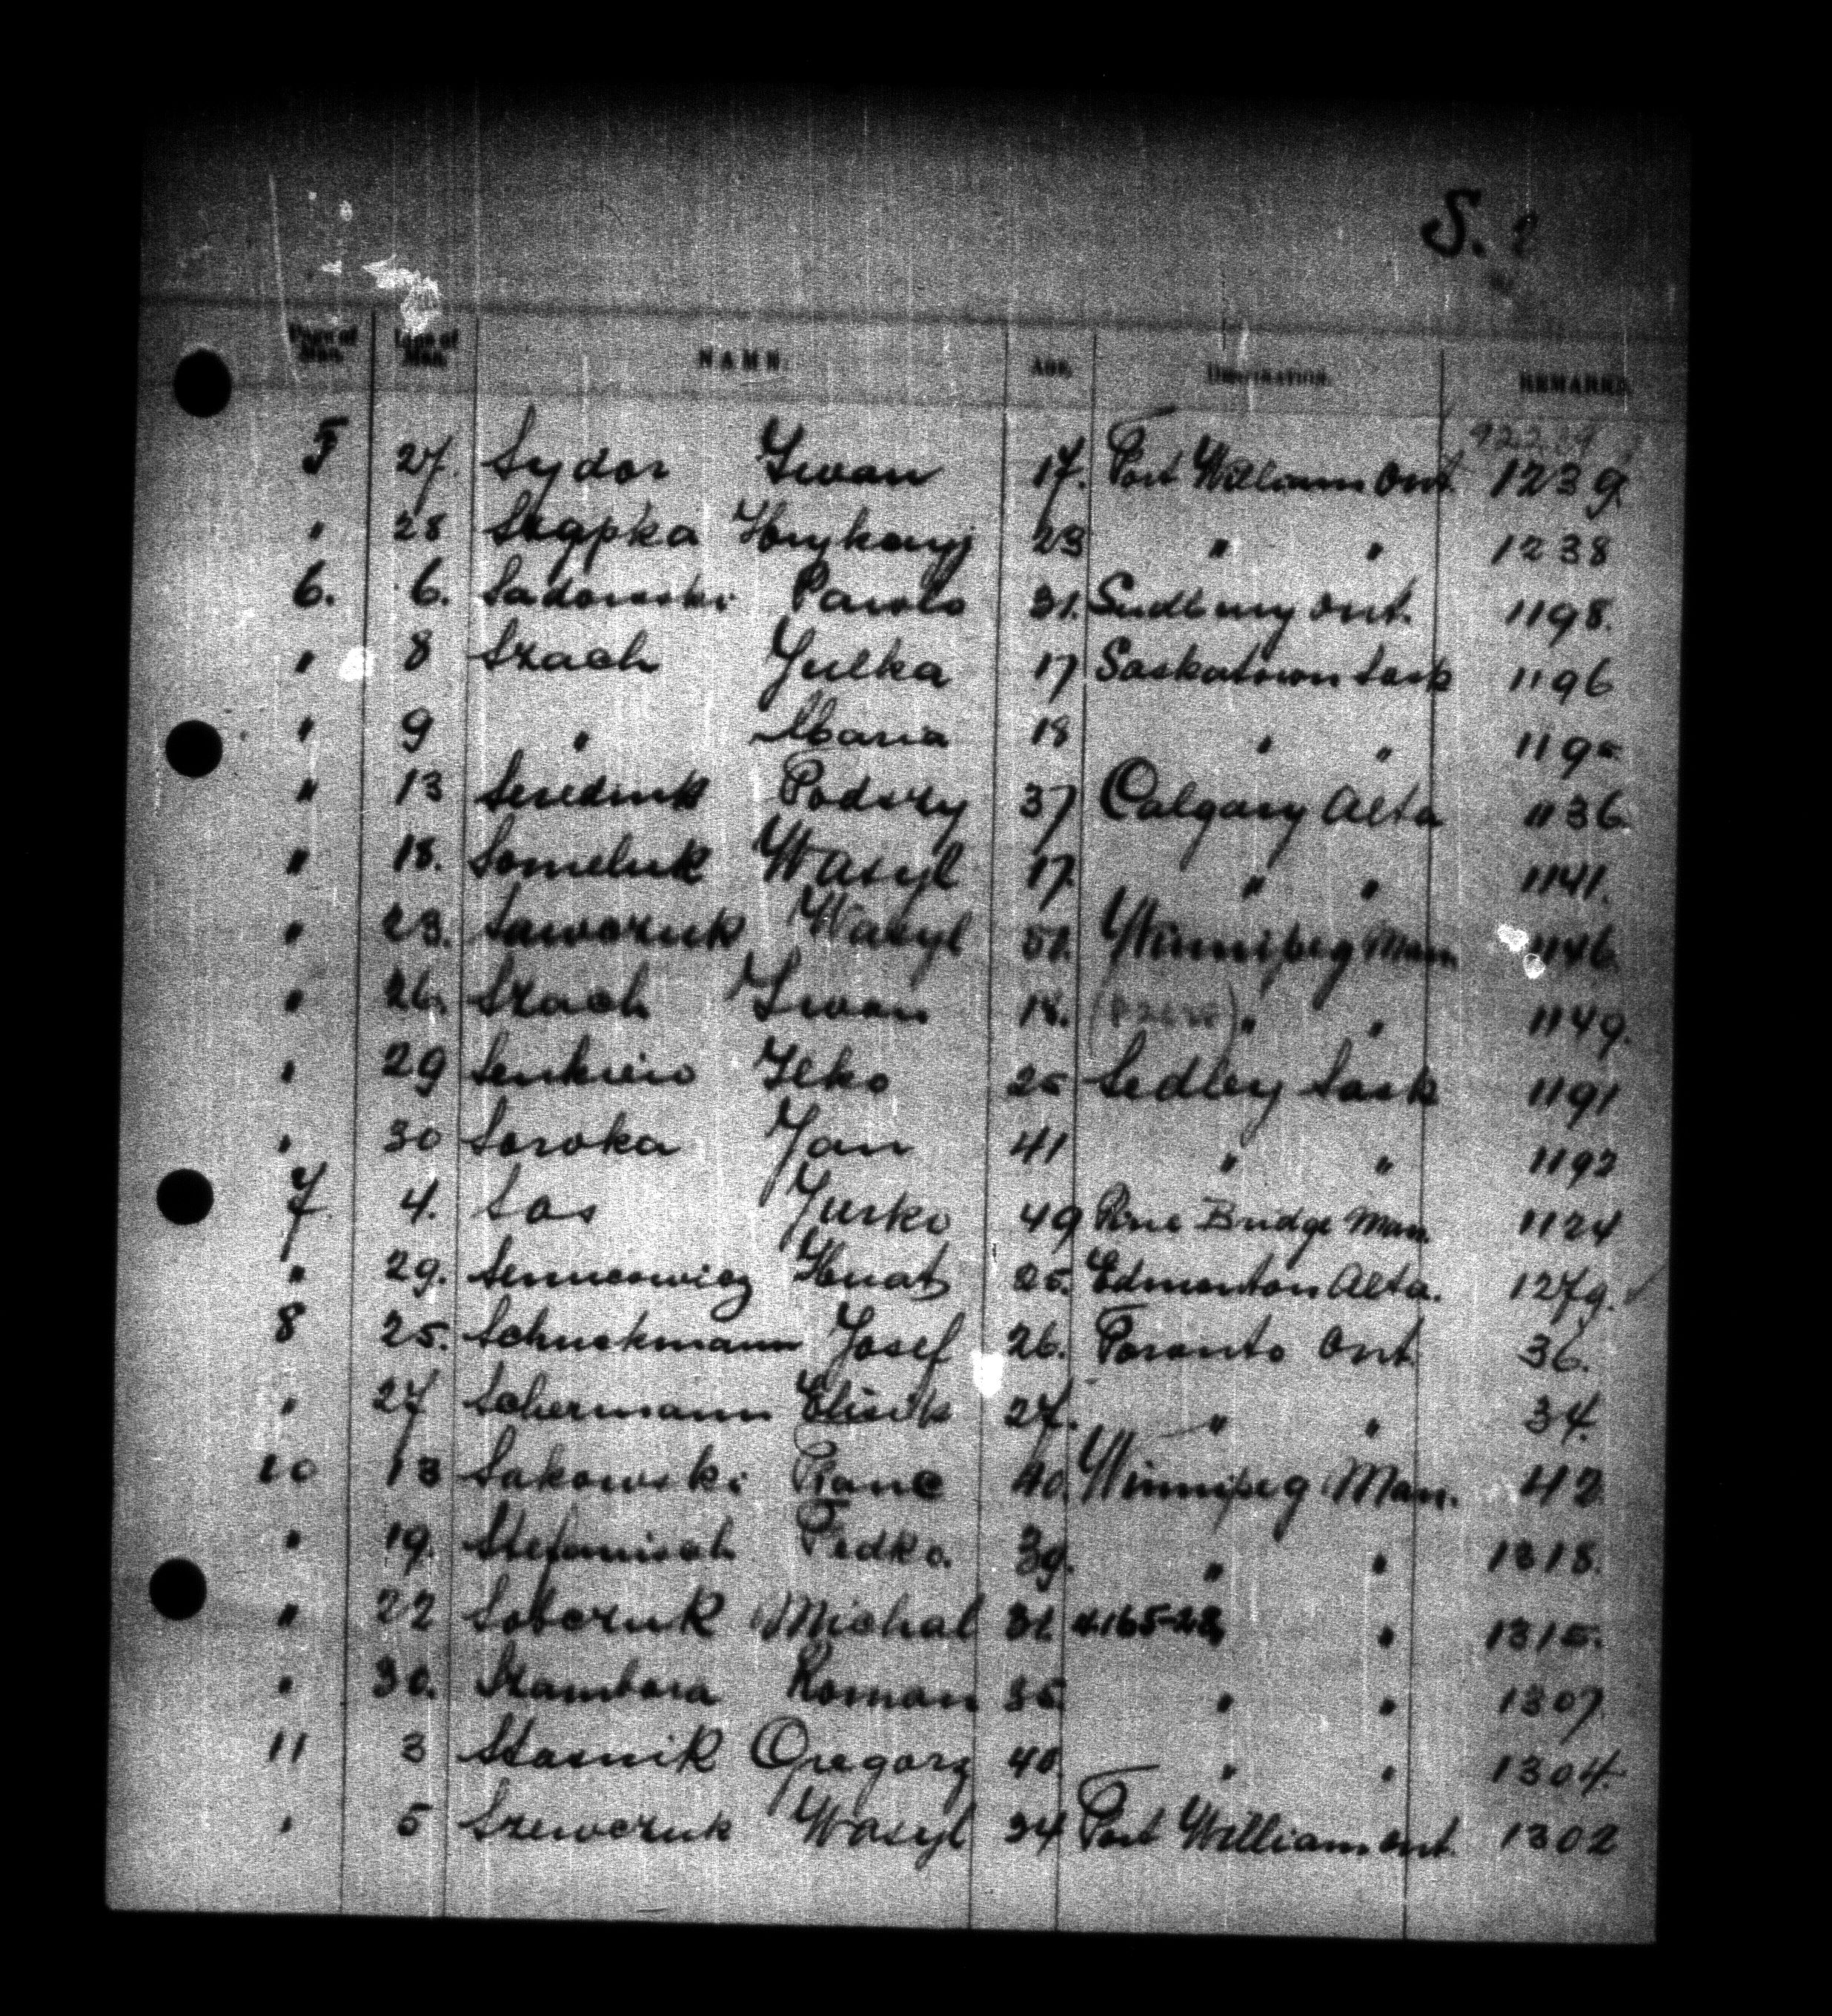 S.
Page of Man. Line of Man. NAME. AGE. DESTINATION. REMARKS
5 27. Sydor Iwan 17. Fort William Ont. 1239
" 28 23 " " 1238
6. 6. Sadowski Pawlo 31. Sudbury Ont. 1198.
" 8 Szach Julka 17 Saskatown Sask 1196
" 9 " Maria 18 " " 1195
" 13 37 Calgary Alta 1136.
" 18. Someluk Wasyl 17. " " 1141.
" 23. Sawczuk Wasyl 51. Winnipeg Man. 1146.
" 26. Szach Iwan 18. " " 1149.
" 29 Senkiew Ilko 25 Sedley Sask 1191
" 30 Soroka Jan 41 " " 1192
7 4. Sas Jurko 49 Pine Bridge Man. 1124
" 29. Hnat 25. Edmonton Alta. 1279.
8 25. Schuckmann Josef 26. Toronto Ont. 36.
" 27 Schermann 27. " " 34.
10 13 Sakowski Franc 40. Winnipeg Man. 42
" 19. Stefanisch Fedko. 39. " " 1318.
" 22 Sobczuk Michal 31. 4165-28, " 1315.
" 30. Stambora Roman 35. " " 1307
11 3 Stasnik Gregorz 40. " " 1304.
" 5 Szewczuk Wasyl 24 Fort William Ont. 1302